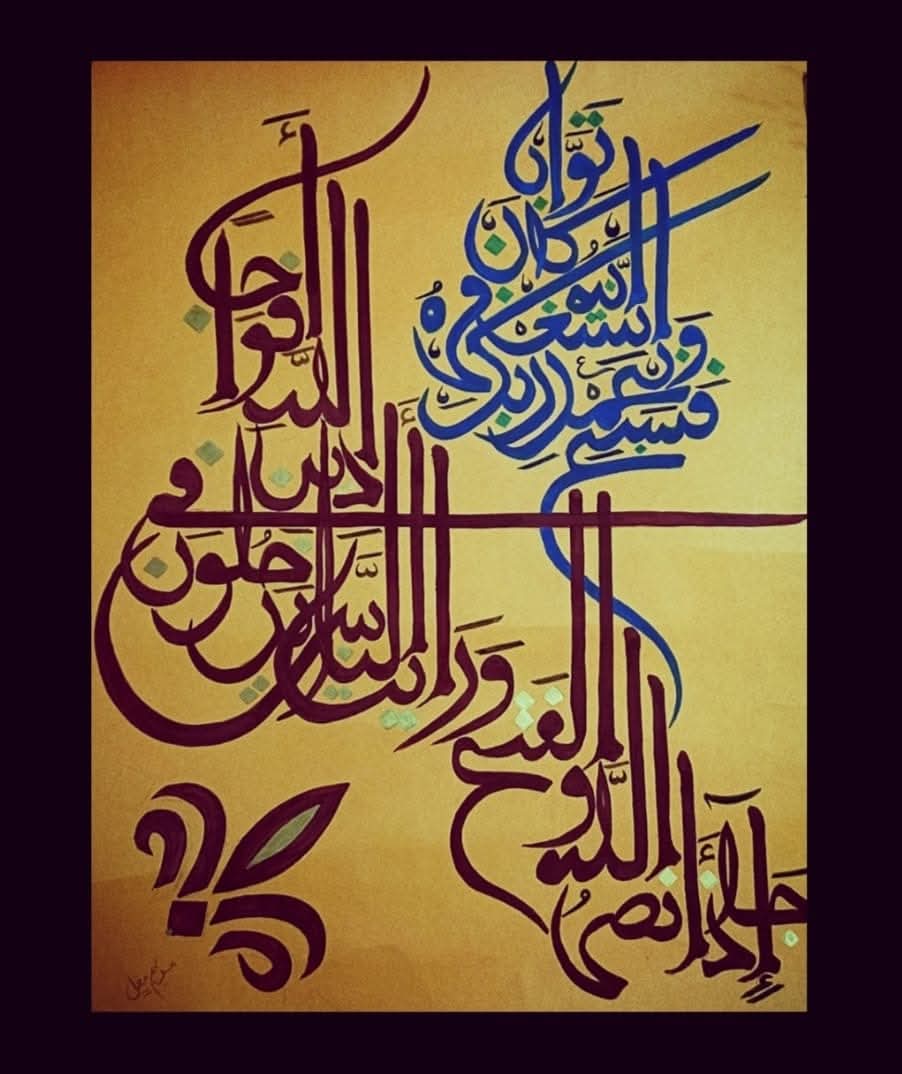 إِذَا جَاءَ نَصْرُ اللَّهِ وَالْفَتْحُ
وَرَأَيْتَ النَّاسَ يَدْخُلُونَ فِي
دِينِ اللَّهِ أَفْوَاجًا
فَسَبِّحْ بِحَمْدِ رَبِّكَ
وَاسْتَغْفِرْهُ إِنَّهُ
كَانَ
تَوَّابًا